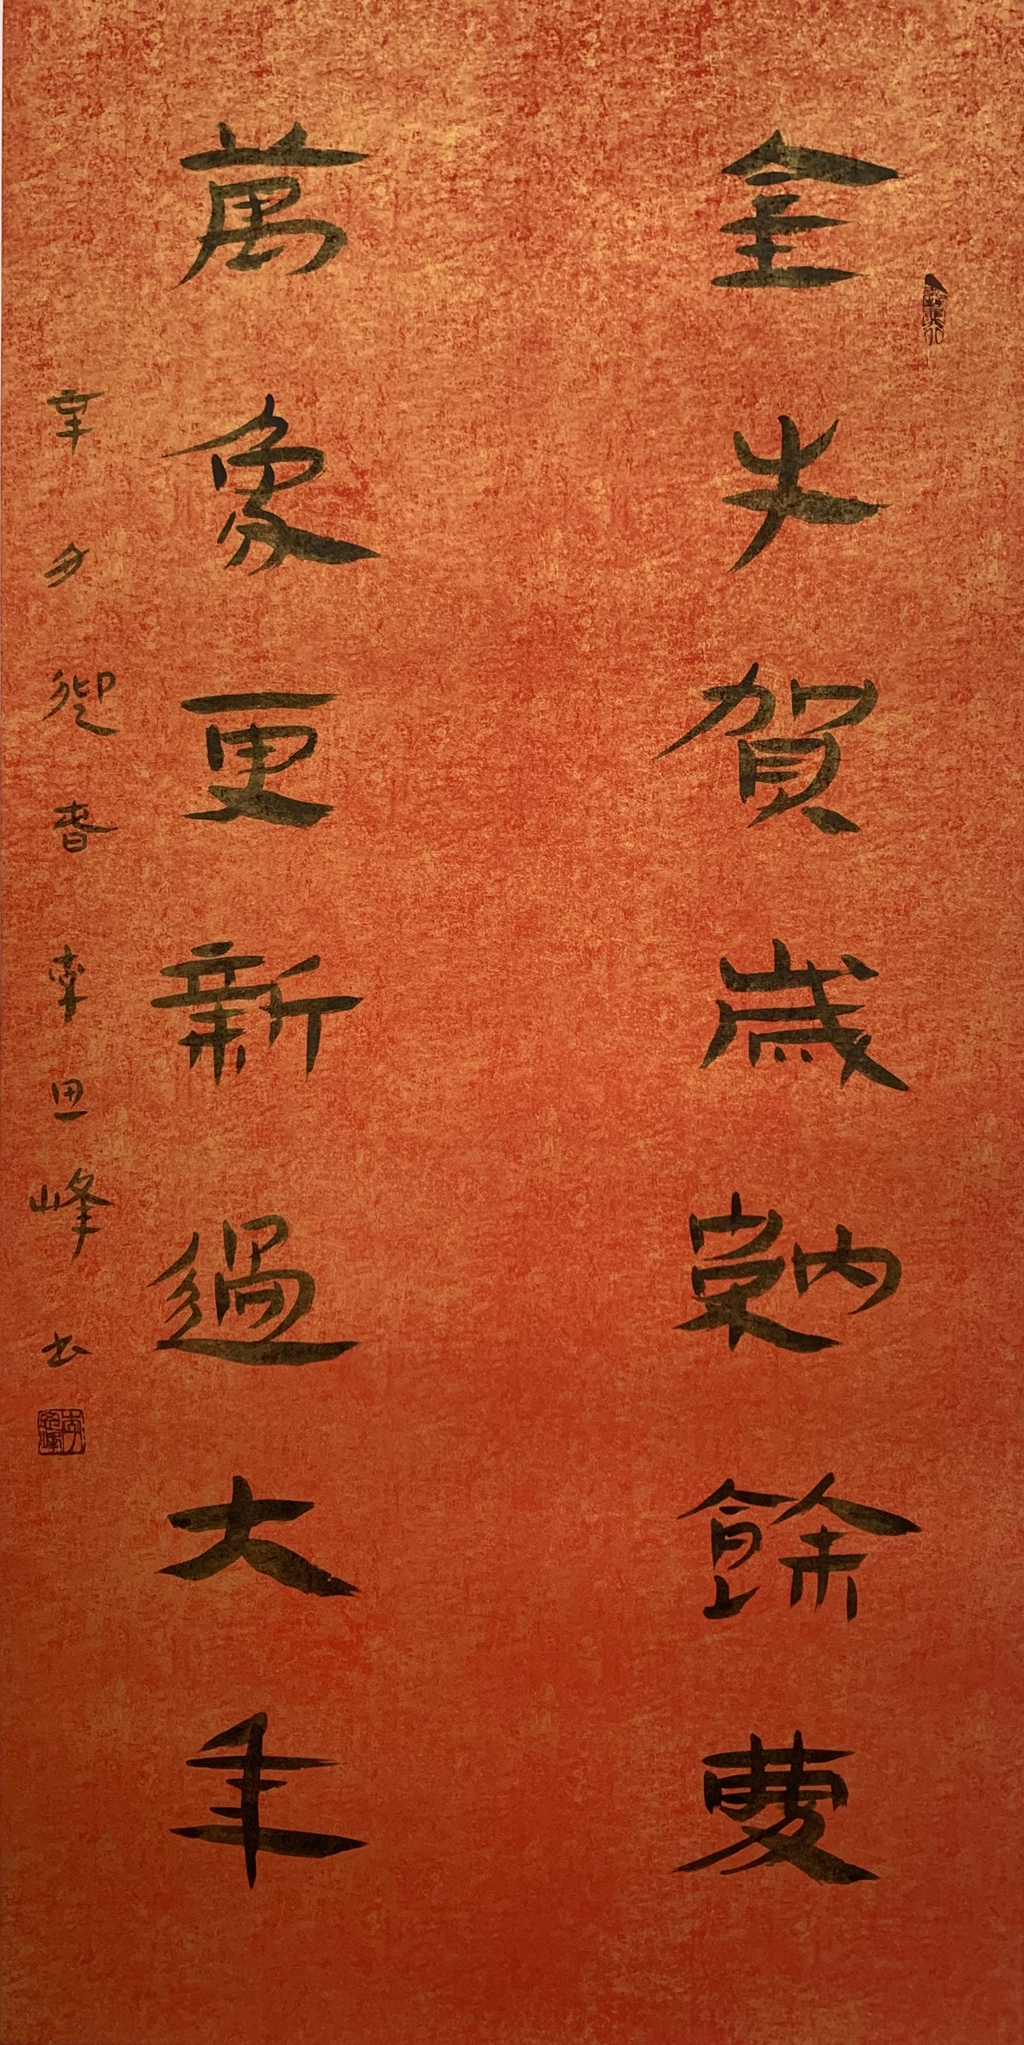 金牛賀歲餘慶
萬象更新過大年
辛丑迎春李思峰书